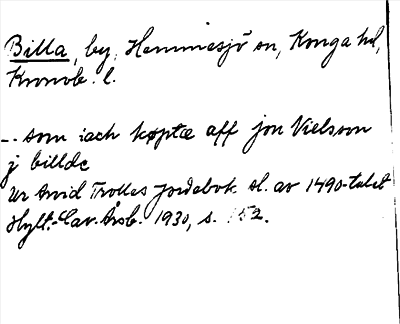 Billa, by, Hemmesjö sn, Konga hd,
Kronob. l.
-- som iach køptæ aff jon Nielsson
j billde
Ur Arvid Trolles Jordebok sl. av 1490-talet
Hylt.-Cav. Årsb. 1930, s. 152.